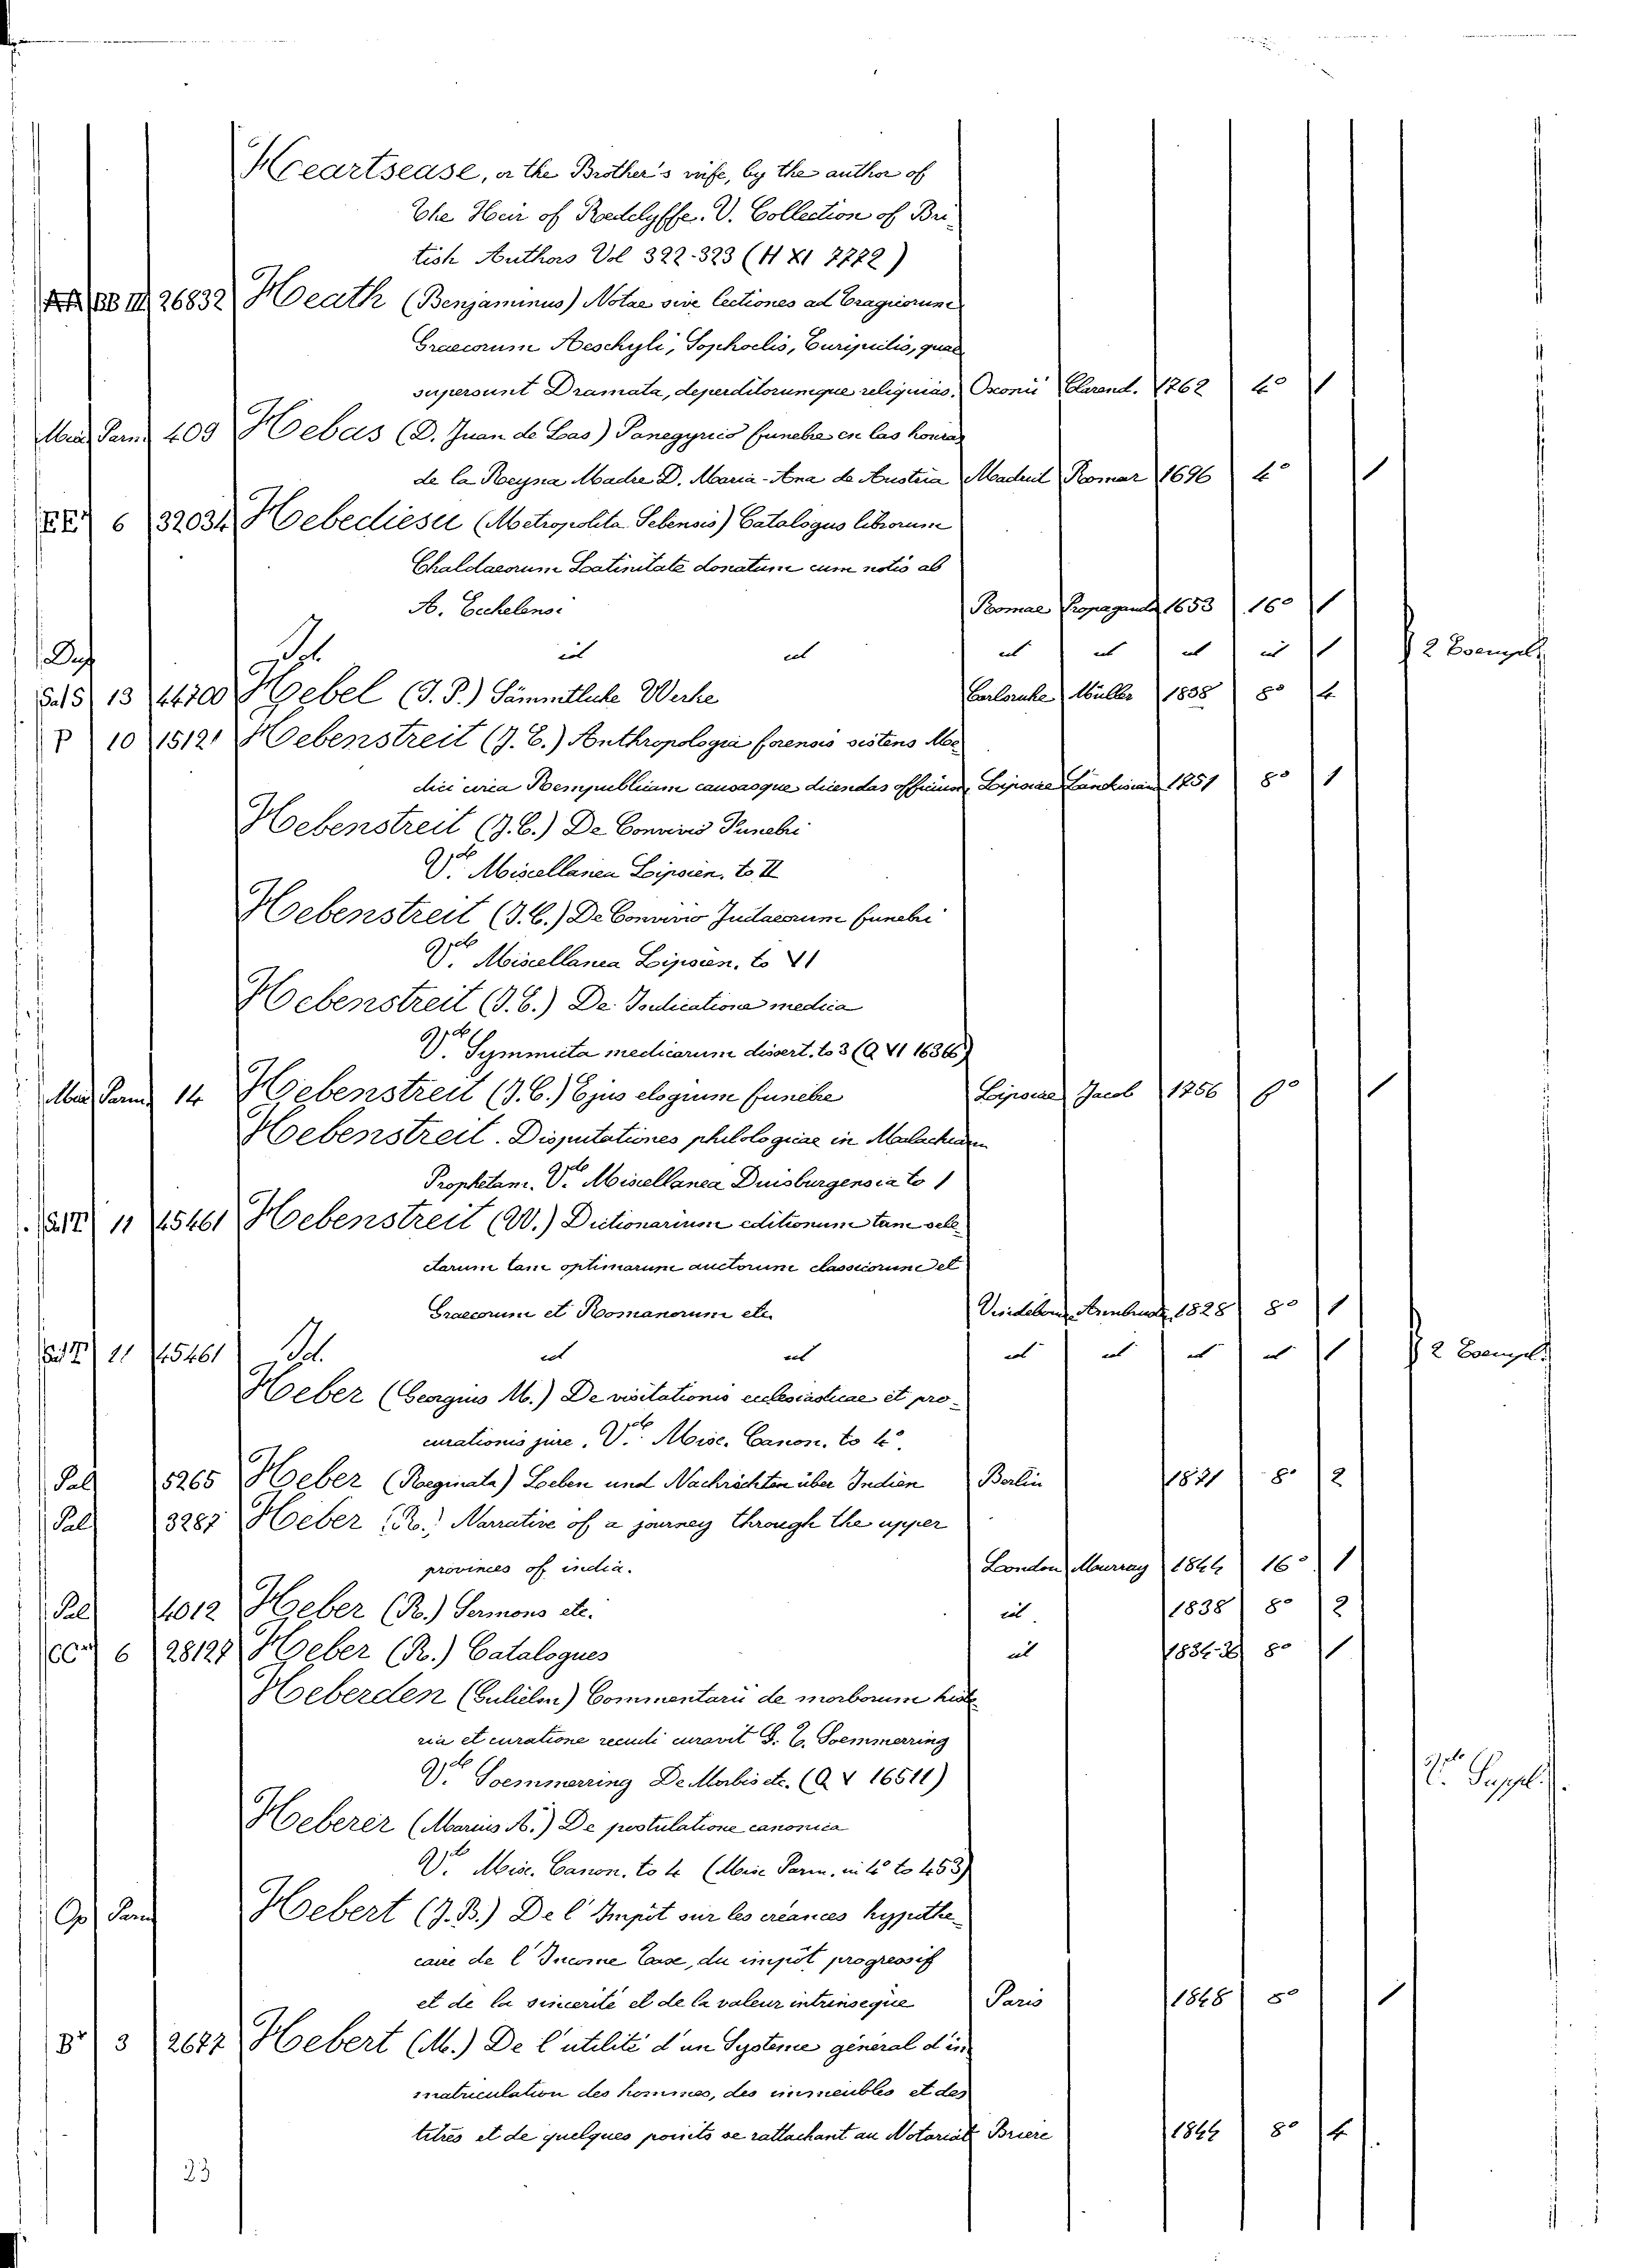 Heartsease, or the Brother's wife, by the author of
The Heir of Redclyffe. V. Collection of Bri-
tish Authors Vol 322-323 (H XI 7772)
BB III 26832 Heath (Benjaminus) Notae sive lectiones ad Tragicorum
Graecorum Aeschyli, Sophoclis, Euripidis, quae
supersunt Dramata, deperditorumque reliquias. Oxonii Clarend. 1762 4° 1
Misc Parm 409 Hebas (D. Juan de Las) Panegyrico funebre en las honras
de la Reyna Madre D. Maria-Ana de Austria Madrid Romar 1696 4° 1
EE 6 32034 Hebediesu (Metropolita Sebensis) Catalogus librorum
Chaldaeorum Latinitate donatum cum notis ab
A. Ecchelensi Romae Propaganda 1653 16° 1
Dup Id. id id id id id id 1 2 Esempl.
Sal5 13 44700 Hebel (J. P.) Sämmtliche Werke Carlsruhe Müller 1838 8° 4
P 10 15121 Hebenstreit (J. E.) Anthropologia forensis sistens Me-
dici circa Rempublicam causasque dicendas officium Lipsiae 1751 8° 1
Hebenstreit (J. C.) De Convivis Funebri
V.de Miscellanea Lipsien. to II
Hebenstreit (J. C.) De Convivio Judaeorum funebri
V.de Miscellanea Lipsien. to VI
Hebenstreit (J. E.) De Indicatione medica
V.de Symmicta medicarum dissert. to 3 (Q VI 16366)
Misc Parm 14 Hebenstreit (J. C.) Ejus elogium funebre Lipsiae Jacob 1756 8° 1
Hebenstreit. Disputationes philologicae in Malachiam
Prophetam. V.de Miscellanea Duisburgensia to 1
11 45461 Hebenstreit (W.) Dictionarium editionum tam sele-
ctarum tam optimarum auctorum classicorum et
Graecorum et Romanorum etc. Vindebon. Armbruste 1828 8° 1
11 45461 Id. id id id id id id 1 2 Esempl.
Heber (Georgius M.) De visitationis ecclesiasticae et pro-
curationis jure. V.de Misc. Canon. to 4°.
Pal 5265 Heber (Reginata) Leben und Nachrichten über Indien Berlin 1831 8° 2
Pal 3287 Heber (R.) Narrative of a journey through the upper
provinces of india. London Murray 1844 16° 1
Pal 4012 Heber (R.) Sermons etc. id. 1838 8° 2
CC 6 28127 Heber (R.) Catalogues id 1834-36 8° 1
Heberden (Gulielm) Commentarii de morborum histo-
ria et curatione recudi curavit S. T. Soemmerring
V.de Soemmerring De Morbis etc. (Q V 16511) V.de Suppl.
Heberer (Marius A.) De postulatione canonica
V.de Misc. Canon. to 4 (Misc Parm. in 4° to 453)
Op Parm Hebert (J. B.) De l'Impôt sur les créances hypothe-
caire de l'Income Taxe, du impôt progressif
et de la sincerité et de la valeur intrinseque Paris 1848 8° 1
3 2677 Hebert (M.) De l'utilité d'un Systeme général d'im
matriculation des hommes, des immeubles et des
titres et de quelques points se rattachant au Notariat Briere 1844 8° 4
23